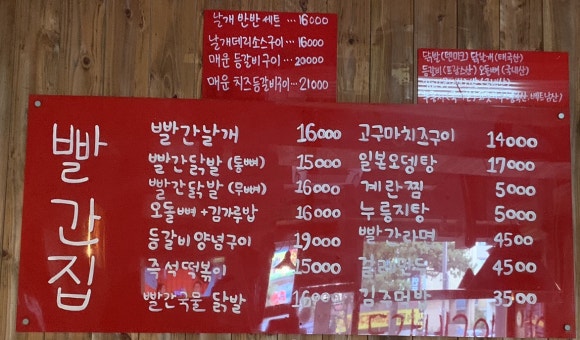 날개 반반 세트 … 16000
날개데리소스구이 … 16000
매운 등갈비구이 … 20000
매운 치즈등갈비구이 … 21000
닭발(덴마크) 닭날개(태국산)
등갈비(프랑스산) 오돌뼈(국내산)
빨간집
빨간날개 16000
빨간닭발(통뼈) 15000
빨간닭발(무뼈) 16000
오돌뼈+김가루밥 16000
등갈비양념구이 19000
즉석떡볶이 15000
빨간국물 닭발
고구마치즈구이 14000
일본오뎅탕 17000
계란찜 5000
누룽지탕 5000
빨간라면 4500
4500
김주먹밥 3500